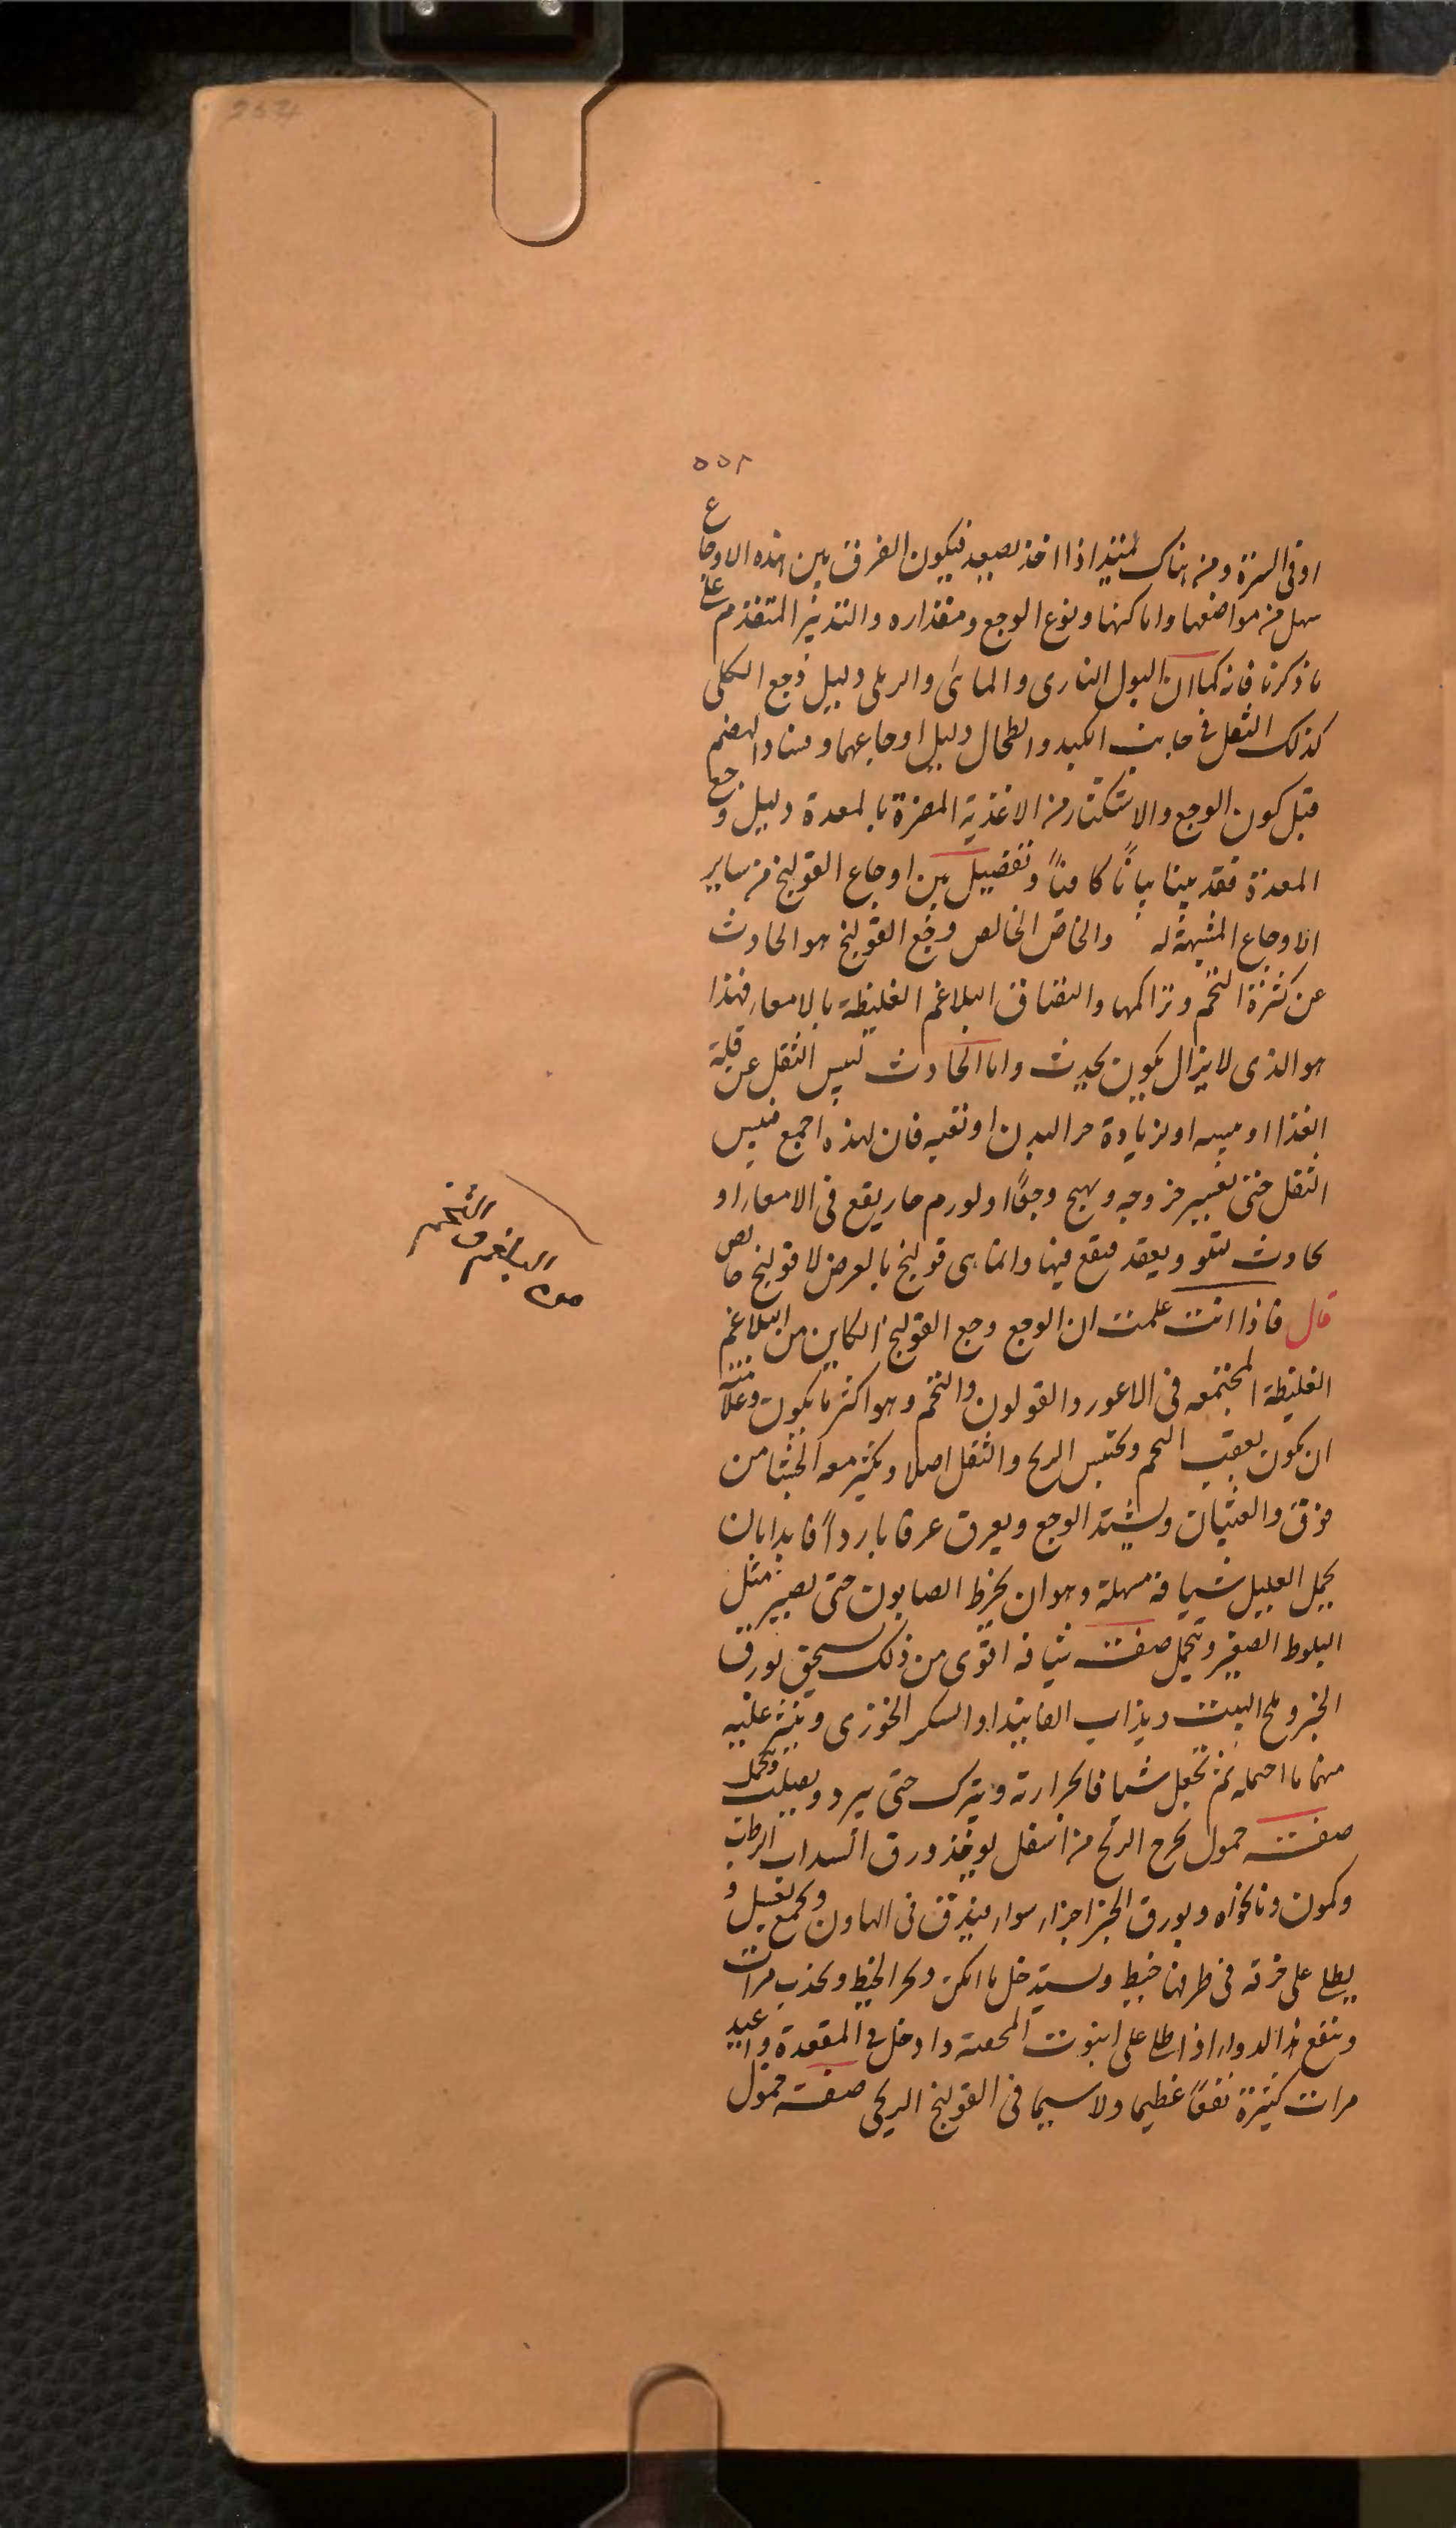 ٥٥٢
او فى السرة ومن هناك يبتدا اذا اخذ يصعد فيكون الفرق بين هذه الاوجاع
سهل من مواضعها واماكنها ونوع الوجع ومقداره والتدبير المتقدم على
ما ذكرنا فانه كما ان البول النارى والمائى والرملى دليل وجع الكلى
كذلك الثقل فى جانب الكبد والطحال دليل اوجاعهما وفساد الهضم
قبل كون الوجع والاستكثار من الاغذية المضرة بالمعدة دليل وجع
المعدة فقد بينا بيانًا كافيًا وتفصيل بين اوجاع القولنج من ساير
الاوجاع المشبهة له والخاص الخالص وجع القولنج هو الحادث
عن كثرة التخم وتراكمها والتصاق البلاغم الغليظة بالامعاء فهذا
هو الذى لا يزال يكون يحدث واما الحادث ليبس الثقل عن قلة
الغذا او يبسه او لزيادة حر البدن او تعبه فان هذه اجمع تيبس
الثقل حتى يعسر خروجه ويهيج وجعًا او لورم حار يقع فى الامعاء او
يحادث تلتو ويعقد يقع فيها وانما هى قولنج بالعرض لا قولنج خالص
قال فاذا انت علمت ان الوجع وجع القولنج الكاين من البلاغم
الغليظة المجتمعه فى الاعور والقولون والتخم وهو اكثر ما يكون وعلامته
ان يكون بعقب التخم ويحتبس الريح والثقل اصلا ويكثر معه الجشا من
فوق والغثيان ويشتد الوجع ويعرق عرقا باردًا فابدا بان
يحمل العليل شيافة مسهلة وهو ان يخرط الصابون حتى يصير مثل
البلوط الصغير ويتحمل صفت شيافه اقوى من ذلك يسحق بورق
الخبز وملح البيت ويذاب الفانيذ او السكر الخوزى وينثر عليه
منها ما احتمله ثم تجعل شيافا بحرارته ويترك حتى يبرد ويصلب ويحمل
صفت حمول يخرج الريح من اسفل يوخذ ورق السداب الرطب
وكمون ونانخواه وبورق الخبز اجزاء سواء فيدق فى الهاون ويجمع بعسل و
يطلى على خرقه فى طرفها خيط ويستدخل ما امكن ويجر الخيط ويجذب مرات
وينفع هذا الدواء اذا طلى على انبوت المحقنه وادخل فى المقعدة واعيد
مرات كثيرة نفعًا عظيما ولا سيما فى القولنج الريحى صفت حمول